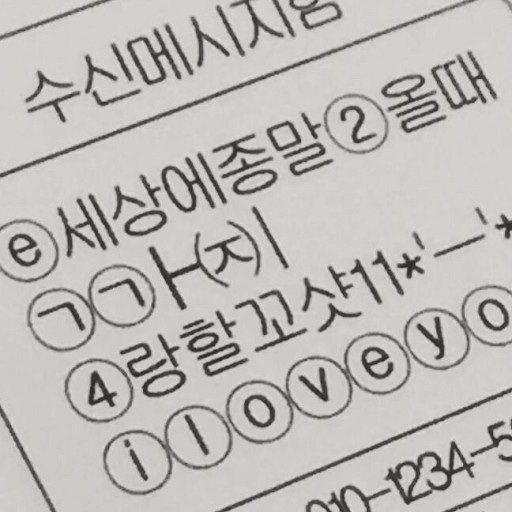 수신메시지함
ⓔ세상에종말②올때
㉠㉠ㅏ㈈ㅣ
④랑할꼬샷11*'ㅡ'*
ⓘⓛⓞⓥⓔⓨⓞ
010-1234-5